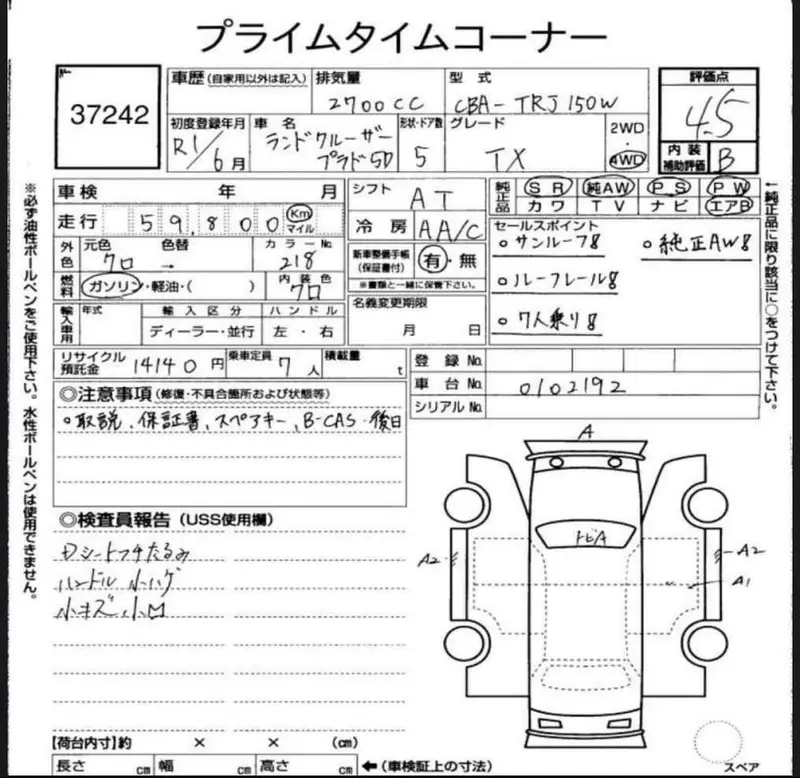 プライムタイムコーナー
37242
車歴(自家用以外は記入)
排気量
2700CC
型式
CBA-TRJ150W
評価点
4.5
初度登録年月
R1/6月
車名
ランドクルーザー
プラド5D
形状・ドア数
5
グレード
TX
2WD
4WD
内装
補助評価
B
車検 年 月
シフト
AT
純正品
SR 純AW PS PW
カワ TV ナビ エアB
走行 59,800 Km
マイル
冷房
AA/C
セールスポイント
○サンルーフ! ○純正AW!
○ルーフレール!
○7人乗り!
外色
元色 色替 カラーNo.
クロ → 218
新車整備手帳
(保証書付)
有・無
※書類と一緒に保管下さい。
燃料
ガソリン・軽油・( )
内装色
クロ
名義変更期限
月 日
輸入車用
年式
輸入区分
ディーラー・並行
ハンドル
左・右
リサイクル
預託金
14140円
乗車定員
7人
積載量
t
登録No.
車台No.
0102192
シリアルNo.
◎注意事項(修復・不具合箇所および状態等)
○取説、保証書、スペアキー、B-CAS 後日
◎検査員報告(USS使用欄)
Dシートフチたるみ
ハンドル 小ハゲ
小キズ 小凹
A
トビA
A2
A2
A1
【荷台内寸】約 × × (cm)
長さ cm 幅 cm 高さ cm ←(車検証上の寸法)
スペア
※必ず油性ボールペンをご使用下さい。水性ボールペンは使用できません。
←純正品に限り該当に○をつけて下さい。